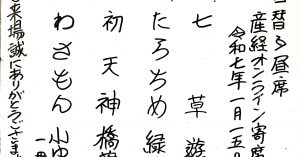 替る昼席
産経オンライン寄席
令和七年一月一五
七草 遊
たらちめ 緑
初天神 橋
わさもん 小ゆ
来場誠にありがとうござま